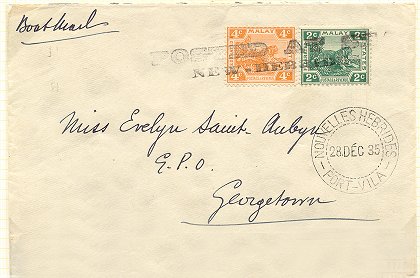 Boat Mail
POSTED AT SEA
NEW-HEBRIDES
4c MALAY 4c
2c MALAY 2c
Miss Evelyn Saint-Aubyn
G.P.O.
Georgetown
NOUVELLES HEBRIDES
28 DÉC 35
PORT-VILA